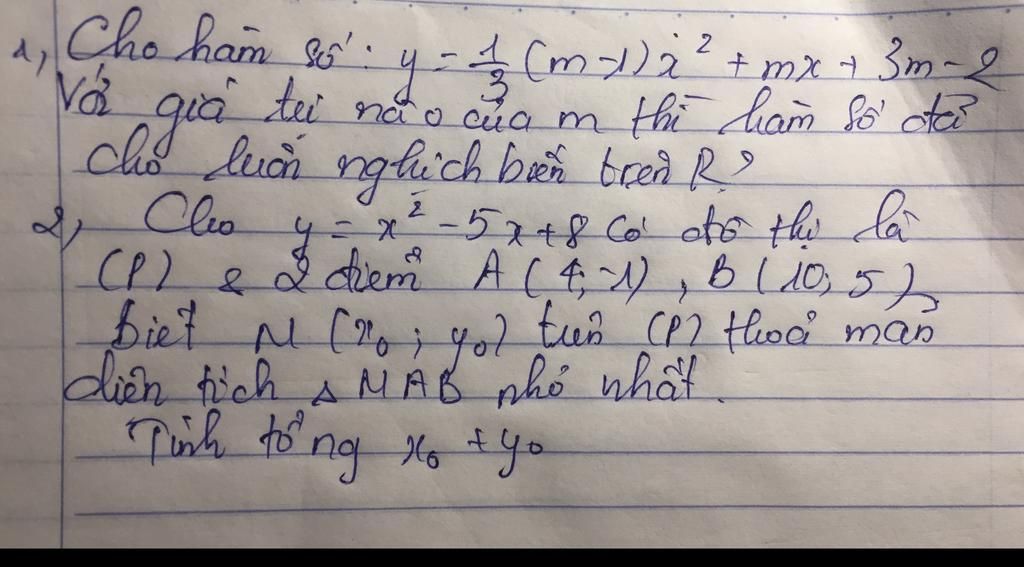 1, Cho hàm số: y = 1/3 (m-1)x² + mx + 3m-2
Với giá trị nào của m thì hàm số đã
cho luôn nghịch biến trên R?
2, Cho y = x² - 5x + 8 có đồ thị là
(P) & 2 điểm A (4; -1), B (10; 5),
biết M (x₀; y₀) trên (P) thoả mãn
diện tích △ MAB nhỏ nhất.
Tính tổng x₀ + y₀